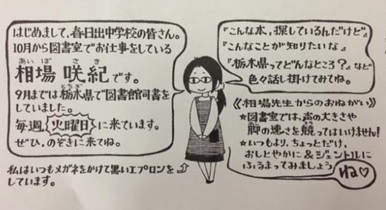 はじめまして、春日出中学校の皆さん。
10月から図書室でお仕事をしている
相場 咲紀です。
あいば さき
9月までは栃木県で図書館司書を
とちぎ
していました。
毎週 火曜日 に来ています。
ぜひ、のぞきに来てね。
私はいつもメガネをかけて黒いエプロンを
しています。
『こんな本、探しているんだけど』
『こんなことが知りたいな』
『栃木県ってどんなところ?』など
色々話し掛けてみてね。
《相場先生からのおねがい》
★図書室では、声の大きさや
脚の速さを競ってはいません!
★いつもより、ちょっとだけ、
おしとやかに&ジェントルに
ふるまってみましょう
ね♡